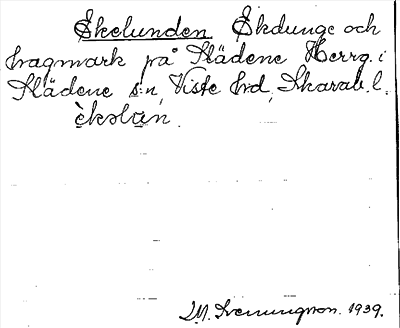 Ekelunden. Ekdunge och
hagmark på Slädene Herrg. i
Slädene s:n, Viste hd, Skarab. l.
èkəlun.
M. Svenungsson. 1939.